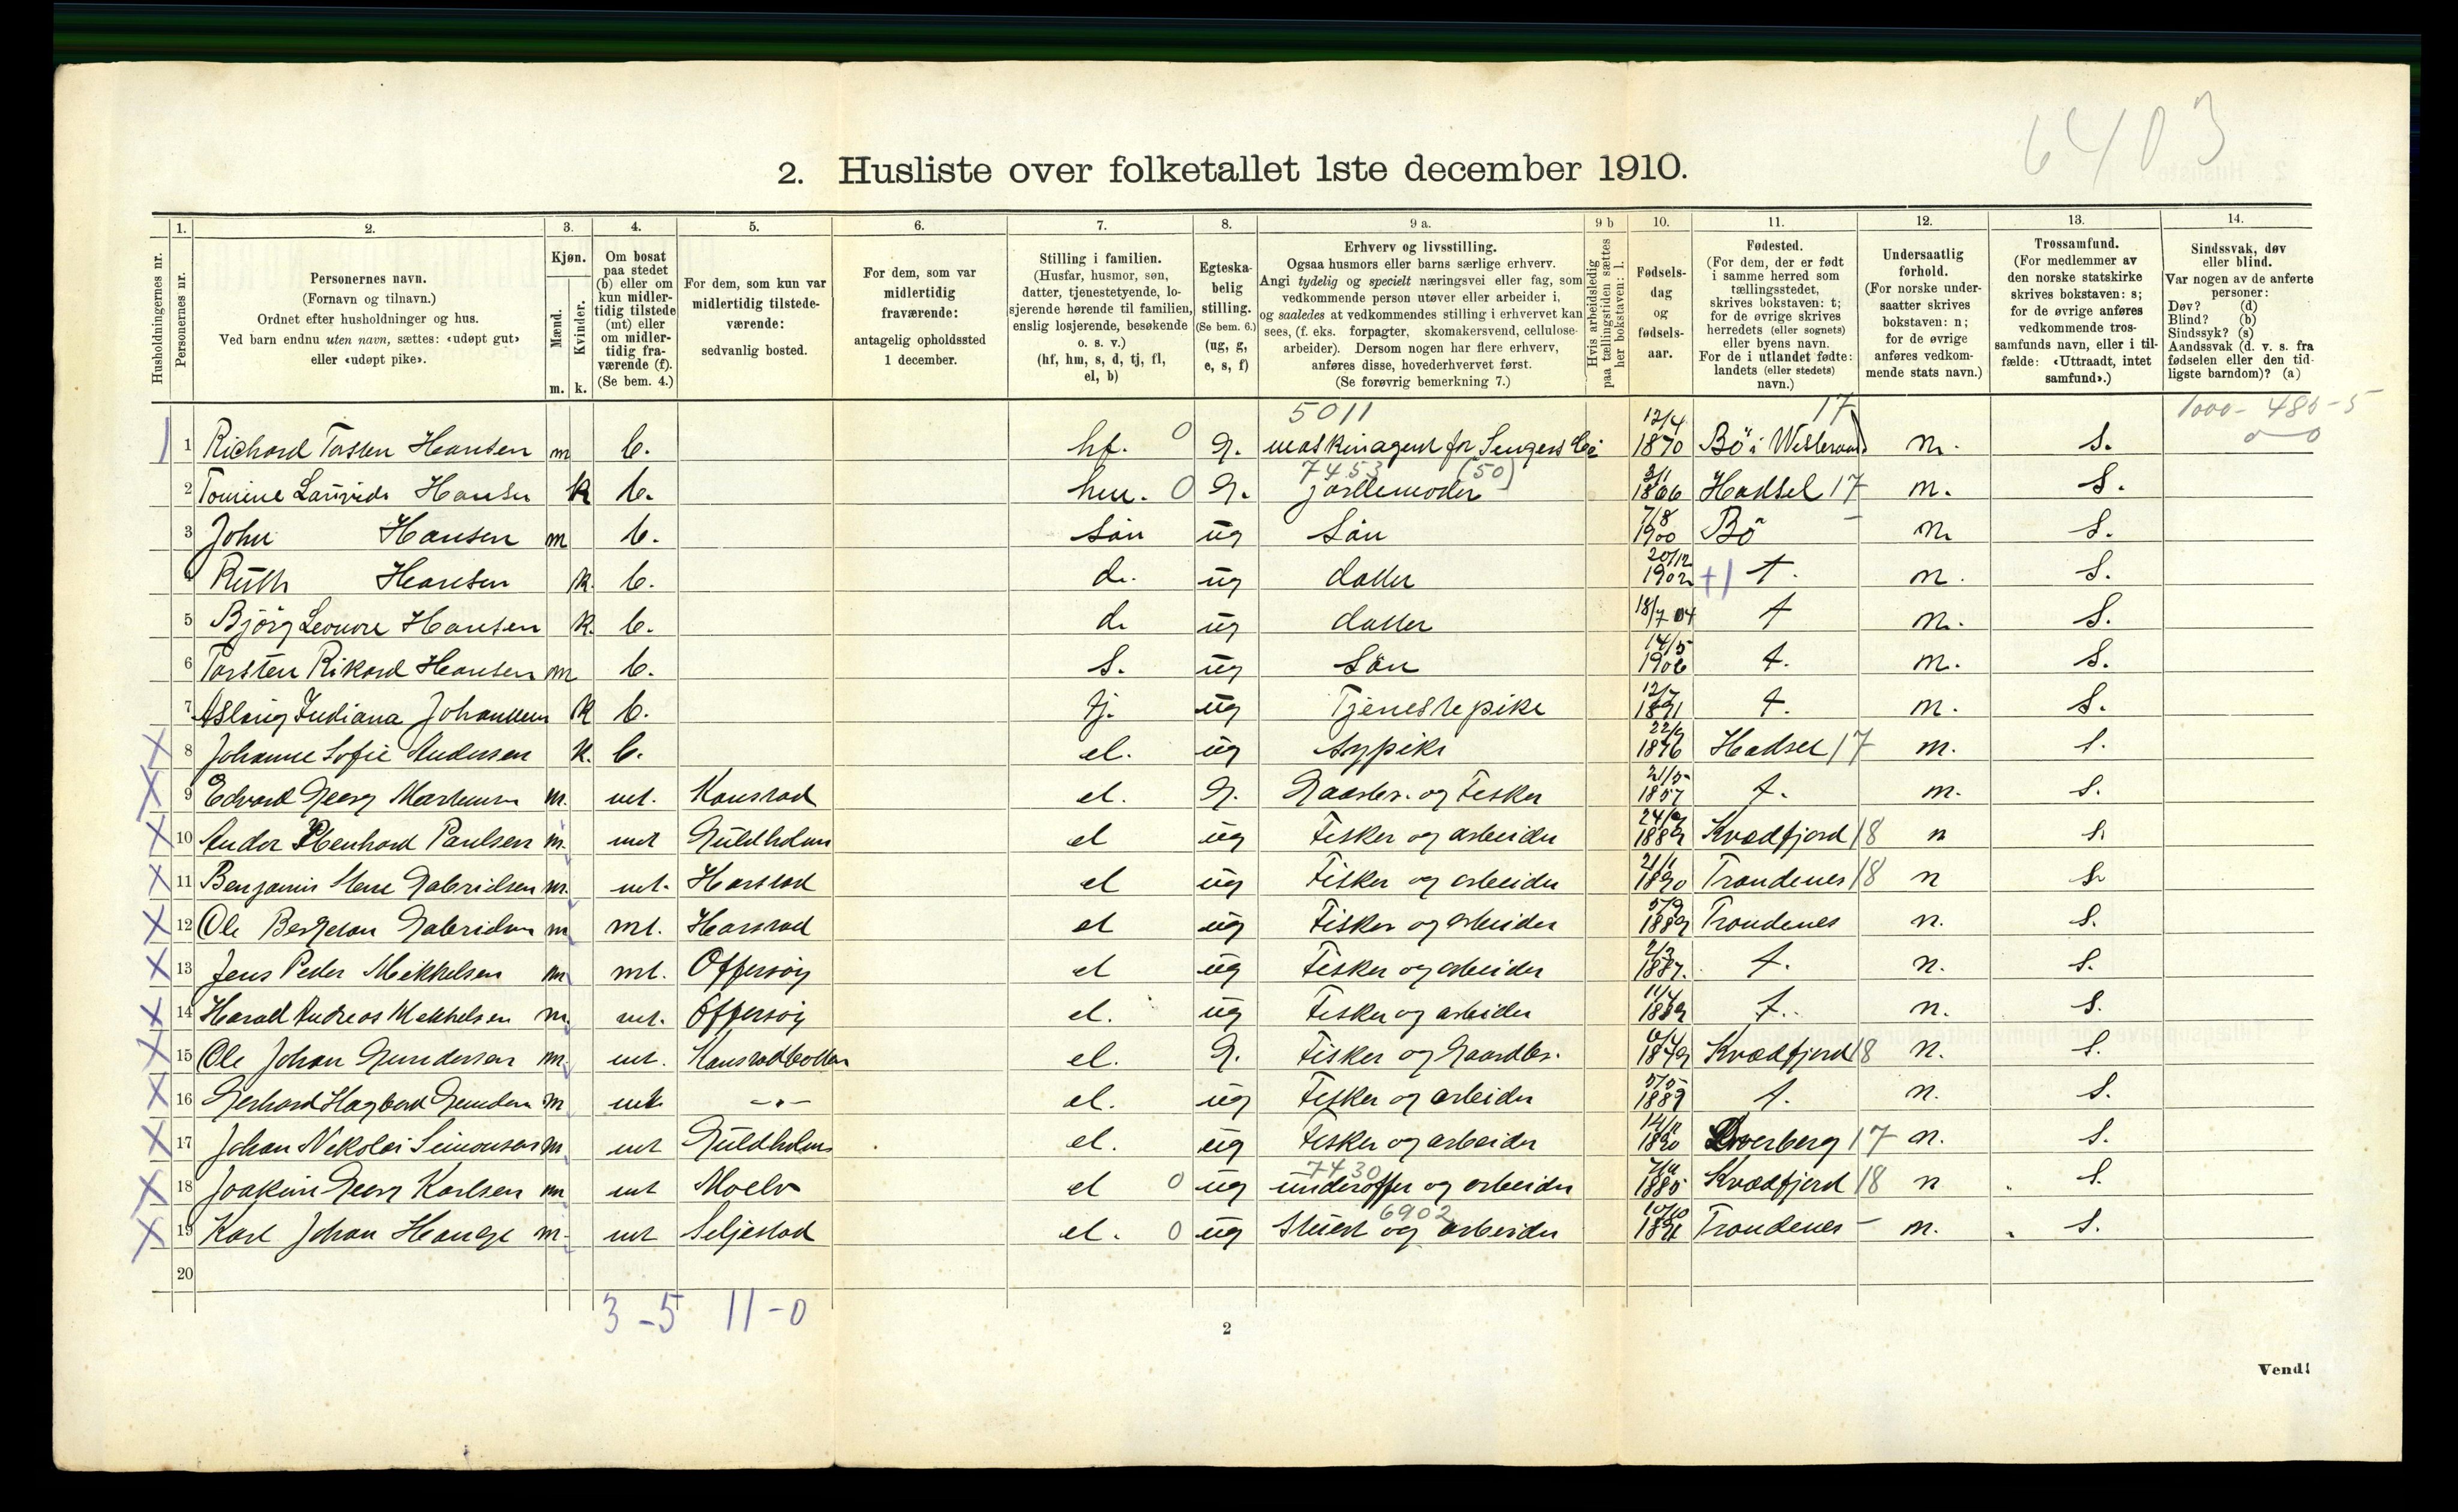 6403
2. Husliste over folketallet 1ste december 1910.
Husholdningernes nr.
1. Personernes nr.
2. Personernes navn. (Fornavn og tilnavn.) Ordnet efter husholdninger og hus. Ved barn endnu uten navn, sættes: «udøpt gut» eller «udøpt pike».
3. Kjøn. Mænd. m. Kvinder. k.
4. Om bosat paa stedet (b) eller om kun midlertidig tilstede (mt) eller om midlertidig fraværende (f). (Se bem. 4.)
5. For dem, som kun var midlertidig tilstedeværende: sedvanlig bosted.
6. For dem, som var midlertidig fraværende: antagelig opholdssted 1 december.
7. Stilling i familien. (Husfar, husmor, søn, datter, tjenestetyende, losjerende hørende til familien, enslig losjerende, besøkende o. s. v.) (hf, hm, s, d, tj, fl, el, b)
8. Egteskabelig stilling. (Se bem. 6.) (ug, g, e, s, f)
9 a. Erhverv og livsstilling. Ogsaa husmors eller barns særlige erhverv. Angi tydelig og specielt næringsvei eller fag, som vedkommende person utøver eller arbeider i, og saaledes at vedkommendes stilling i erhvervet kan sees, (f. eks. forpagter, skomakersvend, cellulosearbeider). Dersom nogen har flere erhverv, anføres disse, hovederhvervet først. (Se forøvrig bemerkning 7.)
9 b Hvis arbeidsledig paa tællingstiden sættes her bokstaven: l.
10. Fødselsdag og fødselsaar.
11. Fødested. (For dem, der er født i samme herred som tællingsstedet, skrives bokstaven: t; for de øvrige skrives herredets (eller sognets) eller byens navn. For de i utlandet fødte: landets (eller stedets) navn.)
12. Undersaatlig forhold. (For norske undersaatter skrives bokstaven: n; for de øvrige anføres vedkommende stats navn.)
13. Trossamfund. (For medlemmer av den norske statskirke skrives bokstaven: s; for de øvrige anføres vedkommende trossamfunds navn, eller i tilfælde: «Uttraadt, intet samfund».)
14. Sindssvak, døv eller blind. Var nogen av de anførte personer: Døv? (d) Blind? (b) Sindssyk? (s) Aandssvak (d. v. s. fra fødselen eller den tidligste barndom)? (a)
5011 17 1000 - 480 - 5
1 Richard Torsten Hansen m b. hf. 0 g. maskinagent for Sengers 12/4 1870 Bö i Westeraal n. S. 0 0
7453 (50)
2 Tomine Lauvride Hansen k b. hm. 0 g. jordemoder 3/1 1866 Hadsel 17 n. S.
3 John Hansen m b. Sön ug Sön 7/8 1900 Bö n S.
4 Ruth Hansen k. b. d. ug datter 20/12 1902 t. n. S.
5 Björg Leonore Hansen k. b. d. ug datter 18/7 04 t n. S.
6 Torsten Rikard Hansen m b. S. ug Sön 14/5 1906 t. n. S.
7 Aslaug Indiana Johansen k b. tj. ug Tjenestepike 12/7 1891 t. n. S.
8 Johanne Sofie Andersen k. b. el. ug sypike 1876 Hadsel 17 n. S.
9 Edvard Georg Martensen m. mt. Kanstad el. g. Gaardbr. og Fisker 21/5 1857 t. n. S.
10 Ander Paulsen m. mt Guldholmen el ug Fisker og arbeider 1889 Kvædfjord 18 n S.
11 Benjamin Gabrielsen m. mt. Harstad el ug Fisker og arbeider 21/1 1890 Trondenes 18 n S.
12 Ole Gabrielsen m mt. Harstad el ug Fisker og arbeider 5/9 1889 Trondenes n. S.
13 Jens Peder Mikkelsen m mt. Offersöy el ug Fisker og arbeider 2/3 1887. t. n. S.
14 Harald Andreas Mikkelsen m. mt. Offersöy el. ug Fisker og arbeider 11/4 1889 t.. n. S.
15 Ole Johan Gundersen m. mt. Kanstadbotten el. g. Fisker og Gaardbr. 1849 Kvædfjord 18 n. S.
16 Gerhard Hagbard Gundersen m mt. -"- el. ug Fisker og arbeider 5/5 1889 t. n. S.
17 Johan Nikolai Simonsen m mt Guldholmen el. ug Fisker og arbeider 1890 Dverberg 17 n. S.
7430
18 Joakim Georg Karlsen m mt Moelv el 0 ug underoffr og arbeider 1885 Kvædfjord 18 n S.
6902
19 Karl Johan Hauge m. mt Seljestad el. 0 ug Stuert og arbeider 10/10 1891 Trondenes - n. S.
20
3 - 5 11 - 0
2
Vend!